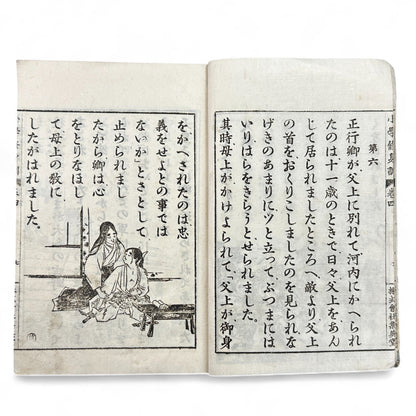 第六
正行卿が父上に別れて河內にかへられ
たのは十一歳のときで日々父上をあん
じて居られましたところへ敵より父上
の首をおくりこしましたのを見られな
げきのあまりにツと立ってぶつまには
いりはらをきらうとせられました。
其時母上がかけよられて「父上が御身
をかへされたのは忠
義をせよとの事では
ないか」とさとして
止められまし
たから卿は心
をとりなほし
て母上の敎に
したがはれました。